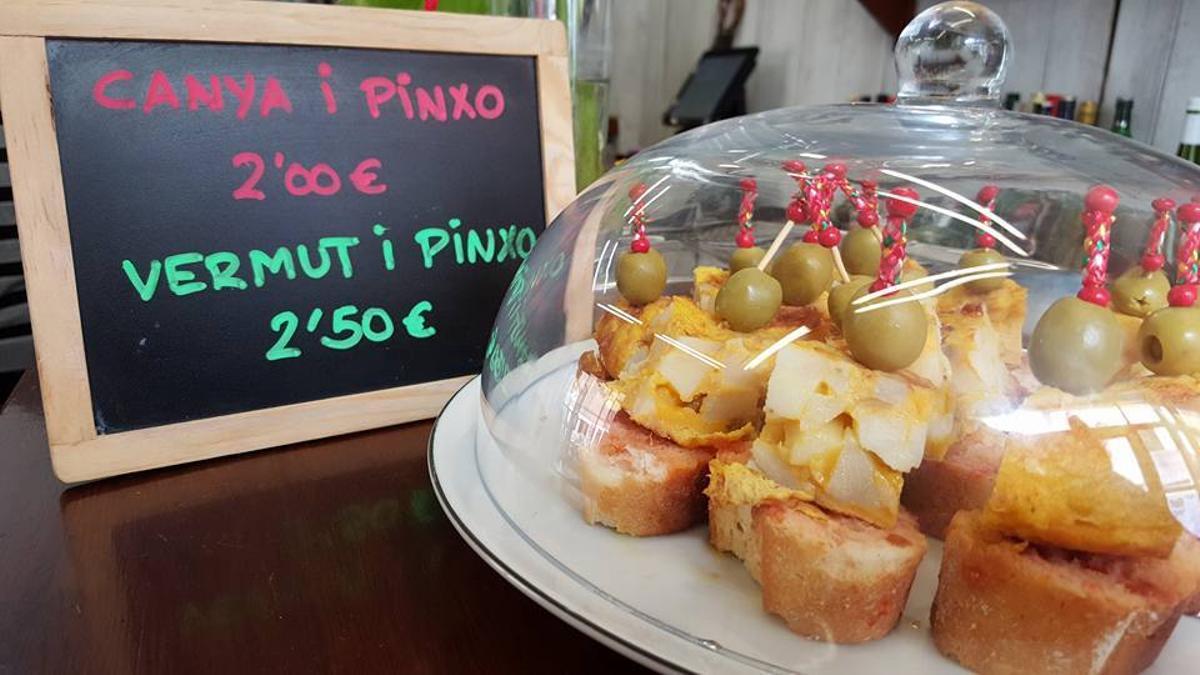 CANYA i PiNXO
2'00€
VERMUT i PiNXO
2'50€